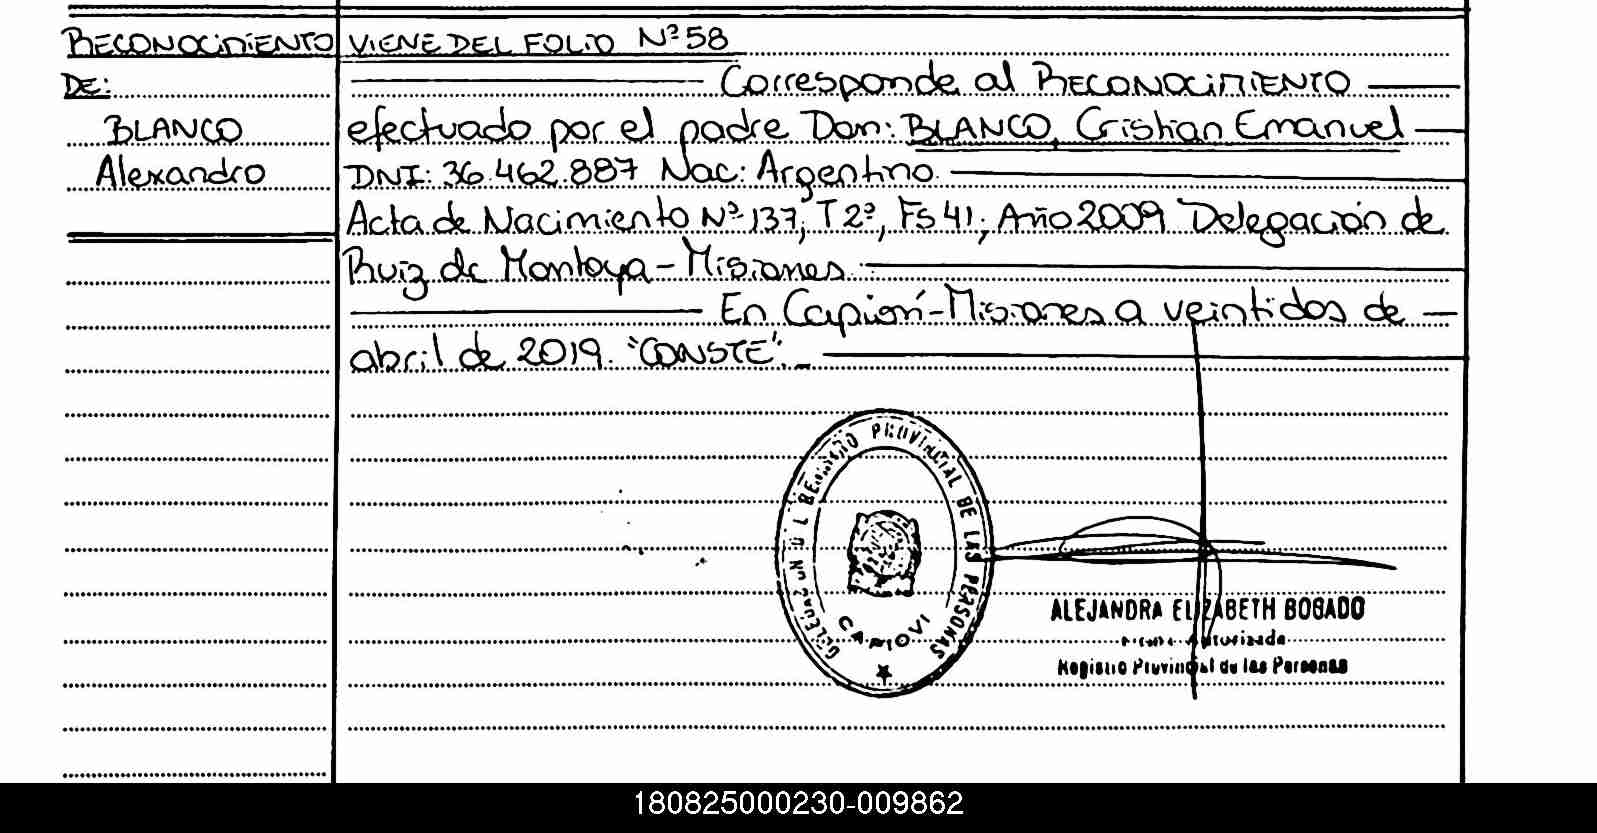 RECONOCIMIENTO
DE:
BLANCO
Alexandro
VIENE DEL FOLIO Nº 58
Corresponde al RECONOCIMIENTO
efectuado por el padre Don: BLANCO, Cristian Emanuel
DNI: 36.462.887 Nac: Argentino
Acta de Nacimiento Nº 137, T 2º, Fs 41, Año 2009 Delegación de
Ruiz de Montoya - Misiones
En Capioví - Misiones a veintidos de
abril de 2019. "CONSTE".
PROVINCIAL DE LAS PERSONAS
CAPIOVI
ALEJANDRA ELIZABETH BOGADO
Autorizada
Registro Provincial de las Personas
180825000230-009862